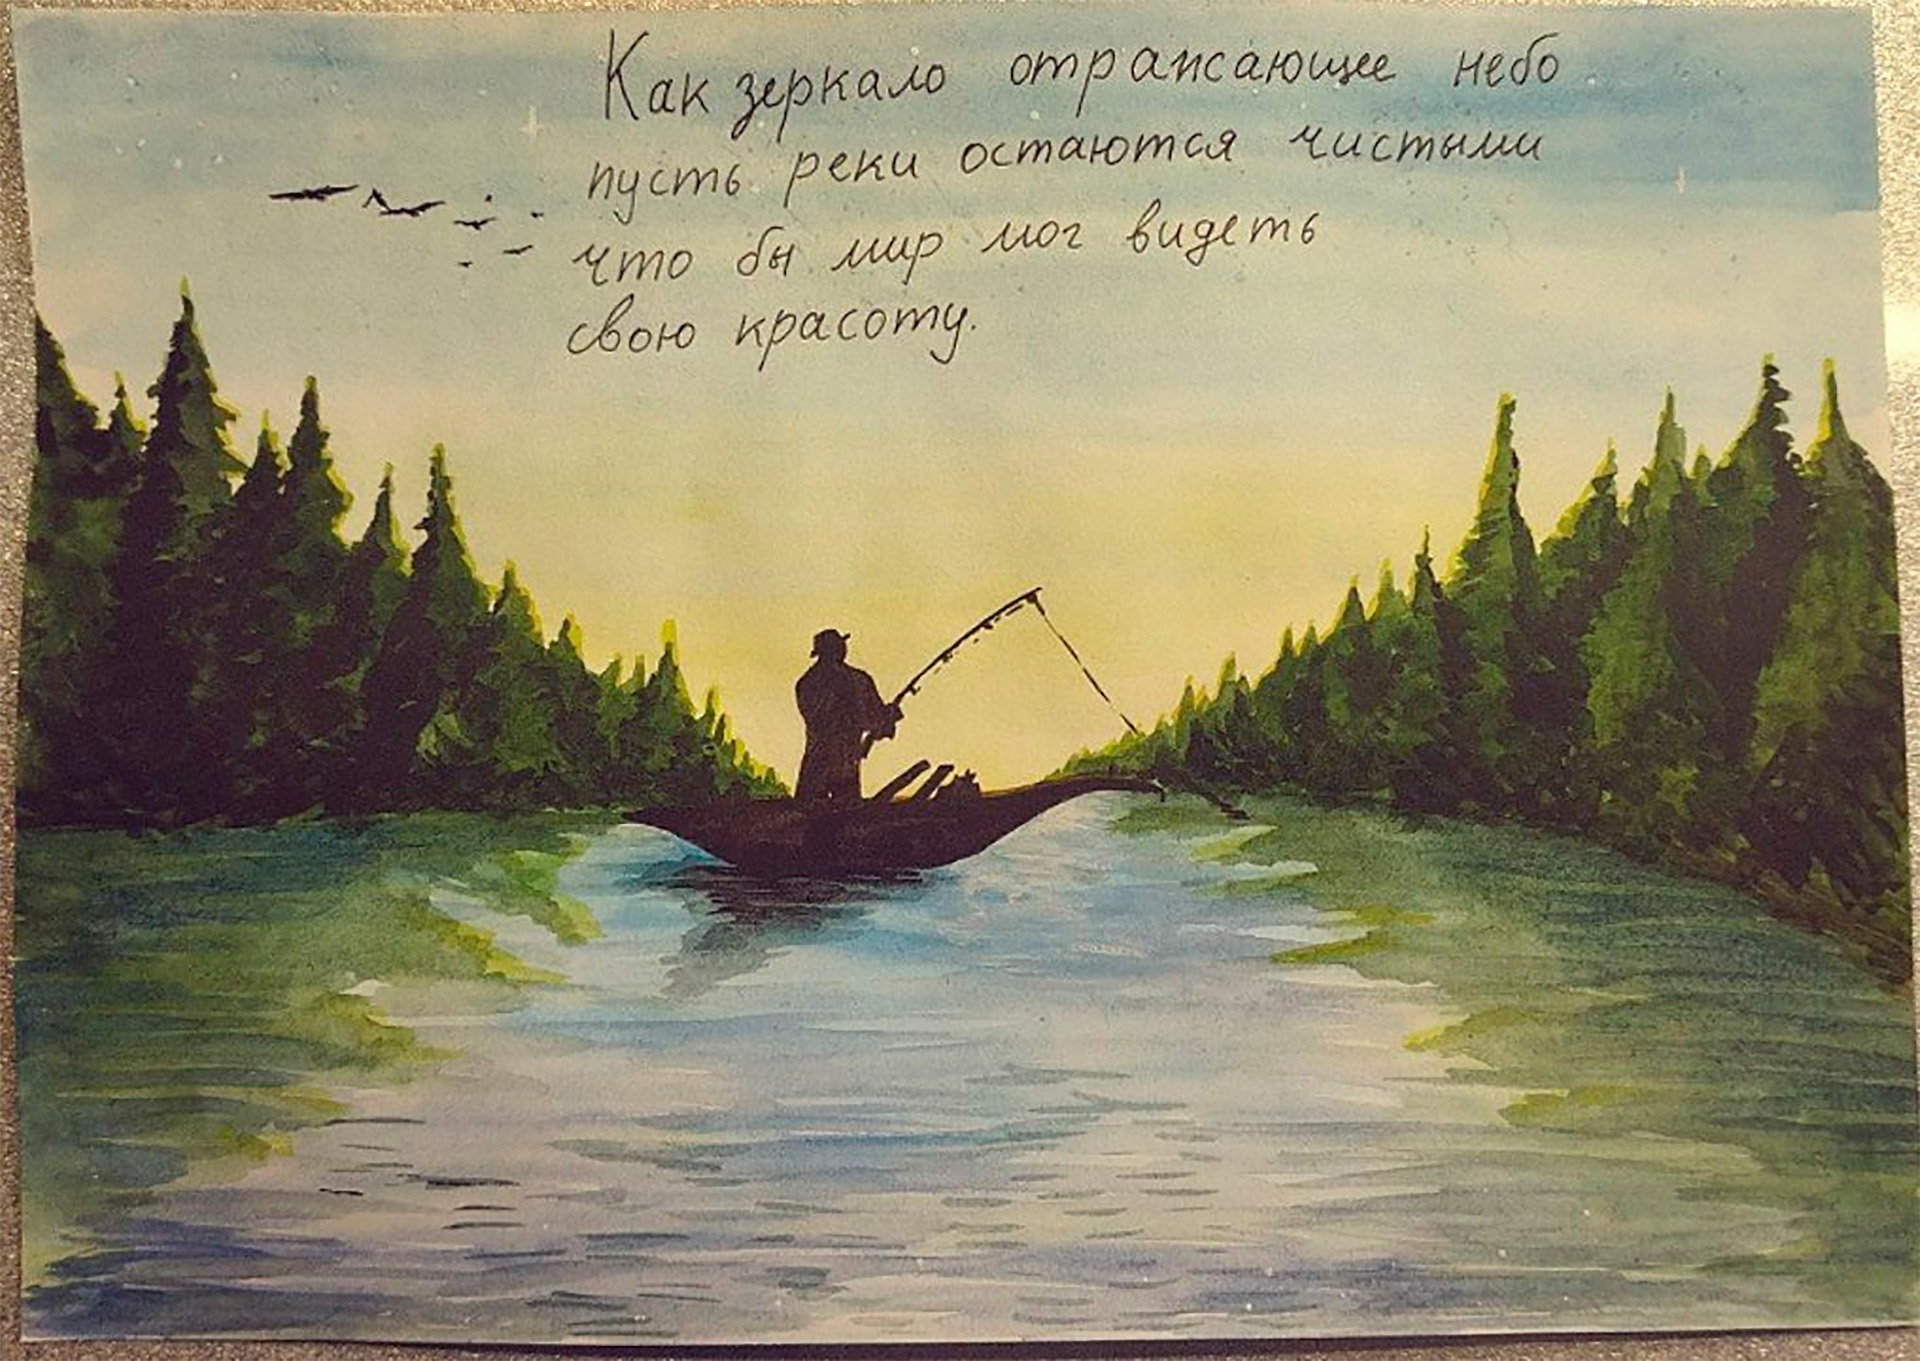 Как зеркало отражающее небо
пусть реки остаются чистыми
что бы мир мог видеть
свою красоту.